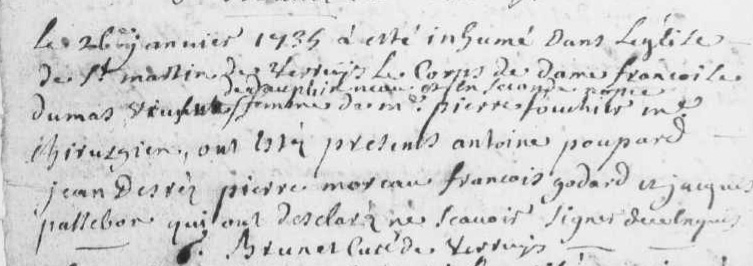 Le 26e janvier 1735 a esté inhumé dans Leglise
de St martin de verruÿs Le Corps de dame francoise
de dauphin neau et en seconde nopce
dumas veufve femme de mr pierre fouchier me
Chirurgien, ont Estéz presents antoine poupard
jean Desréz pierre moreau francois godard et jacques
passebon qui ont desclaréz ne scavoir signer de ce enquis
Brunet Curé de verruÿs